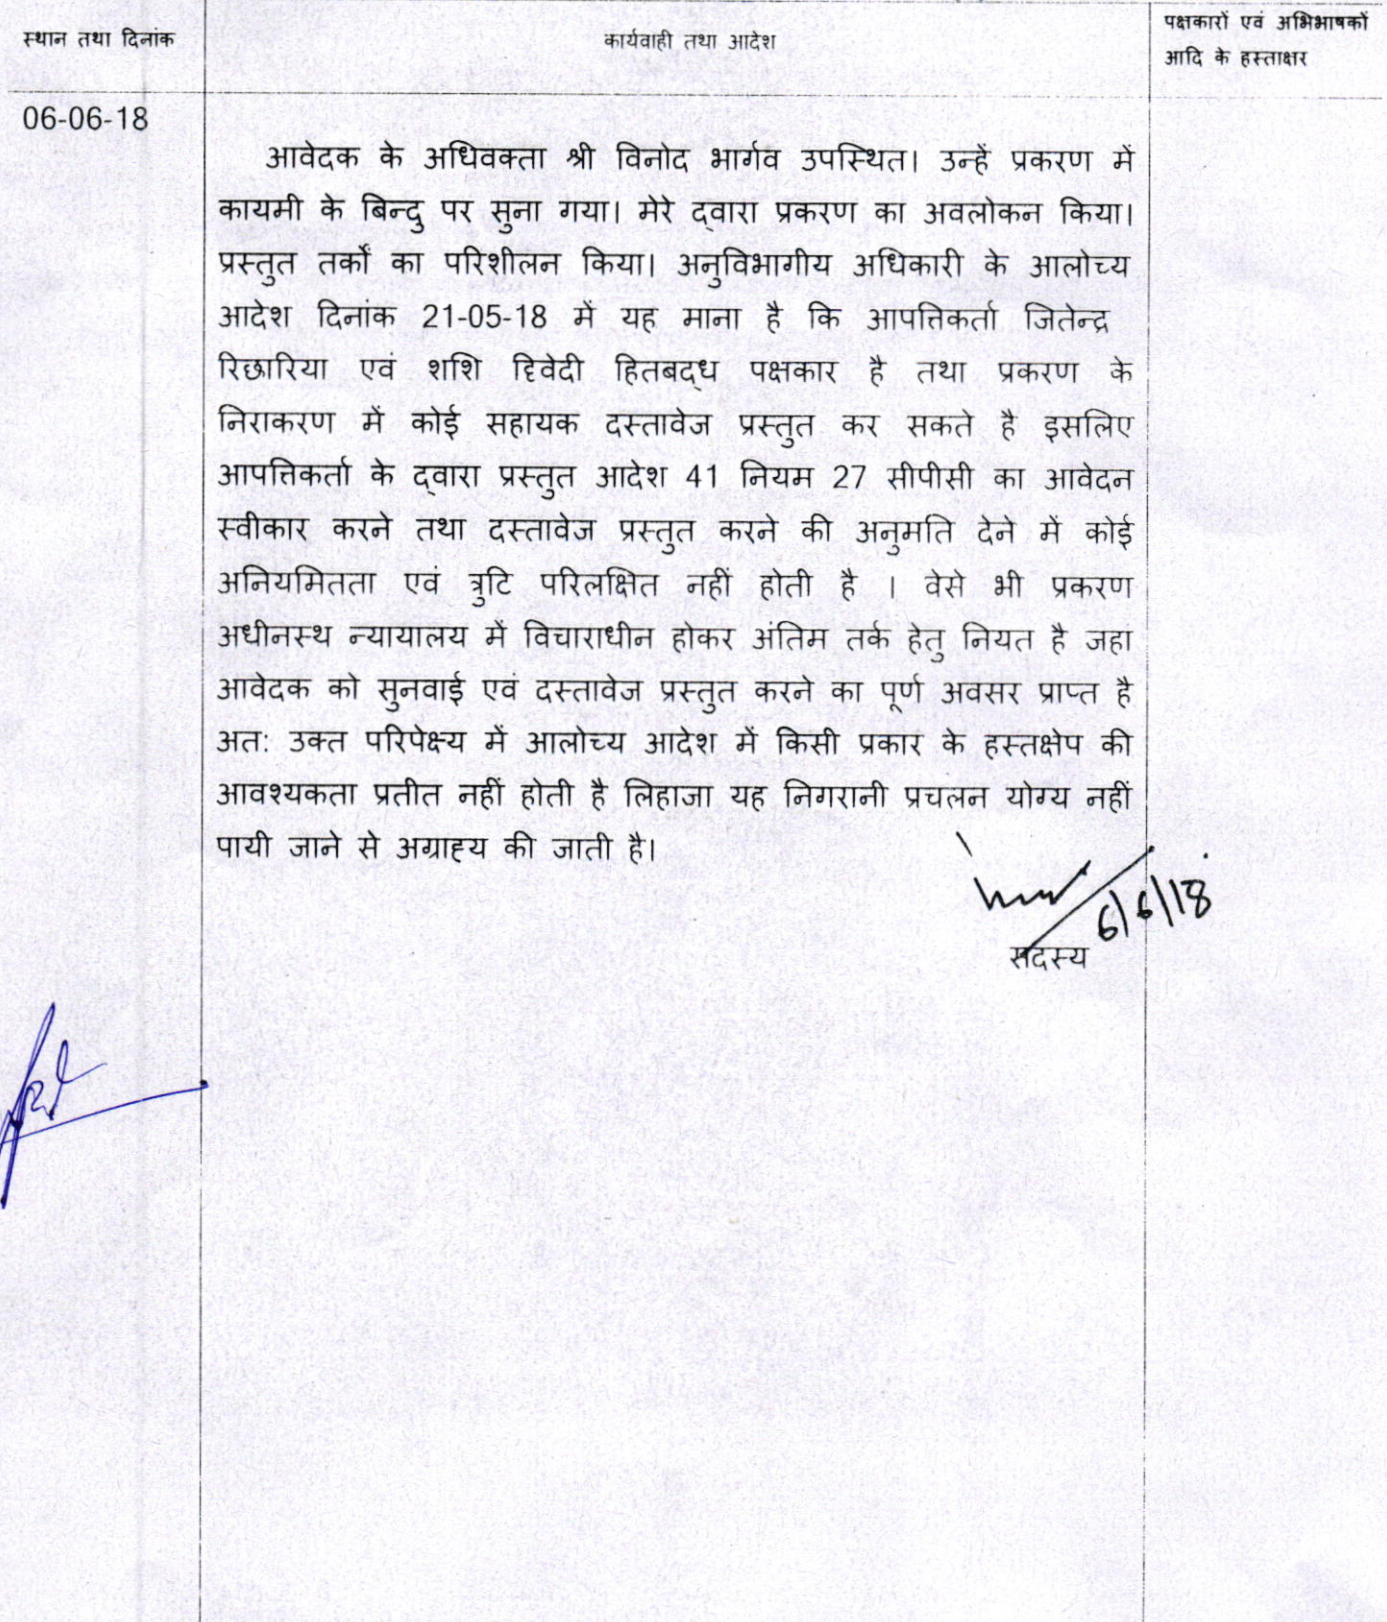 स्थान तथा दिनांक
कार्यवाही तथा आदेश
पक्षकारों एवं अभिभाषकों
आदि के हस्ताक्षर
06-06-18
आवेदक के अधिवक्ता श्री विनोद भार्गव उपस्थित। उन्हें प्रकरण में
कायमी के बिन्दु पर सुना गया। मेरे द्वारा प्रकरण का अवलोकन किया।
प्रस्तुत तर्कों का परिशीलन किया। अनुविभागीय अधिकारी के आलोच्य
आदेश दिनांक 21-05-18 में यह माना है कि आपत्तिकर्ता जितेन्द्र
रिछारिया एवं शशि द्विवेदी हितबद्ध पक्षकार है तथा प्रकरण के
निराकरण में कोई सहायक दस्तावेज प्रस्तुत कर सकते है इसलिए
आपत्तिकर्ता के द्वारा प्रस्तुत आदेश 41 नियम 27 सीपीसी का आवेदन
स्वीकार करने तथा दस्तावेज प्रस्तुत करने की अनुमति देने में कोई
अनियमितता एवं त्रुटि परिलक्षित नहीं होती है । वेसे भी प्रकरण
अधीनस्थ न्यायालय में विचाराधीन होकर अंतिम तर्क हेतु नियत है जहा
आवेदक को सुनवाई एवं दस्तावेज प्रस्तुत करने का पूर्ण अवसर प्राप्त है
अत: उक्त परिपेक्ष्य में आलोच्य आदेश में किसी प्रकार के हस्तक्षेप की
आवश्यकता प्रतीत नहीं होती है लिहाजा यह निगरानी प्रचलन योग्य नहीं
पायी जाने से अग्राह्य की जाती है।
6/6/18
सदस्य